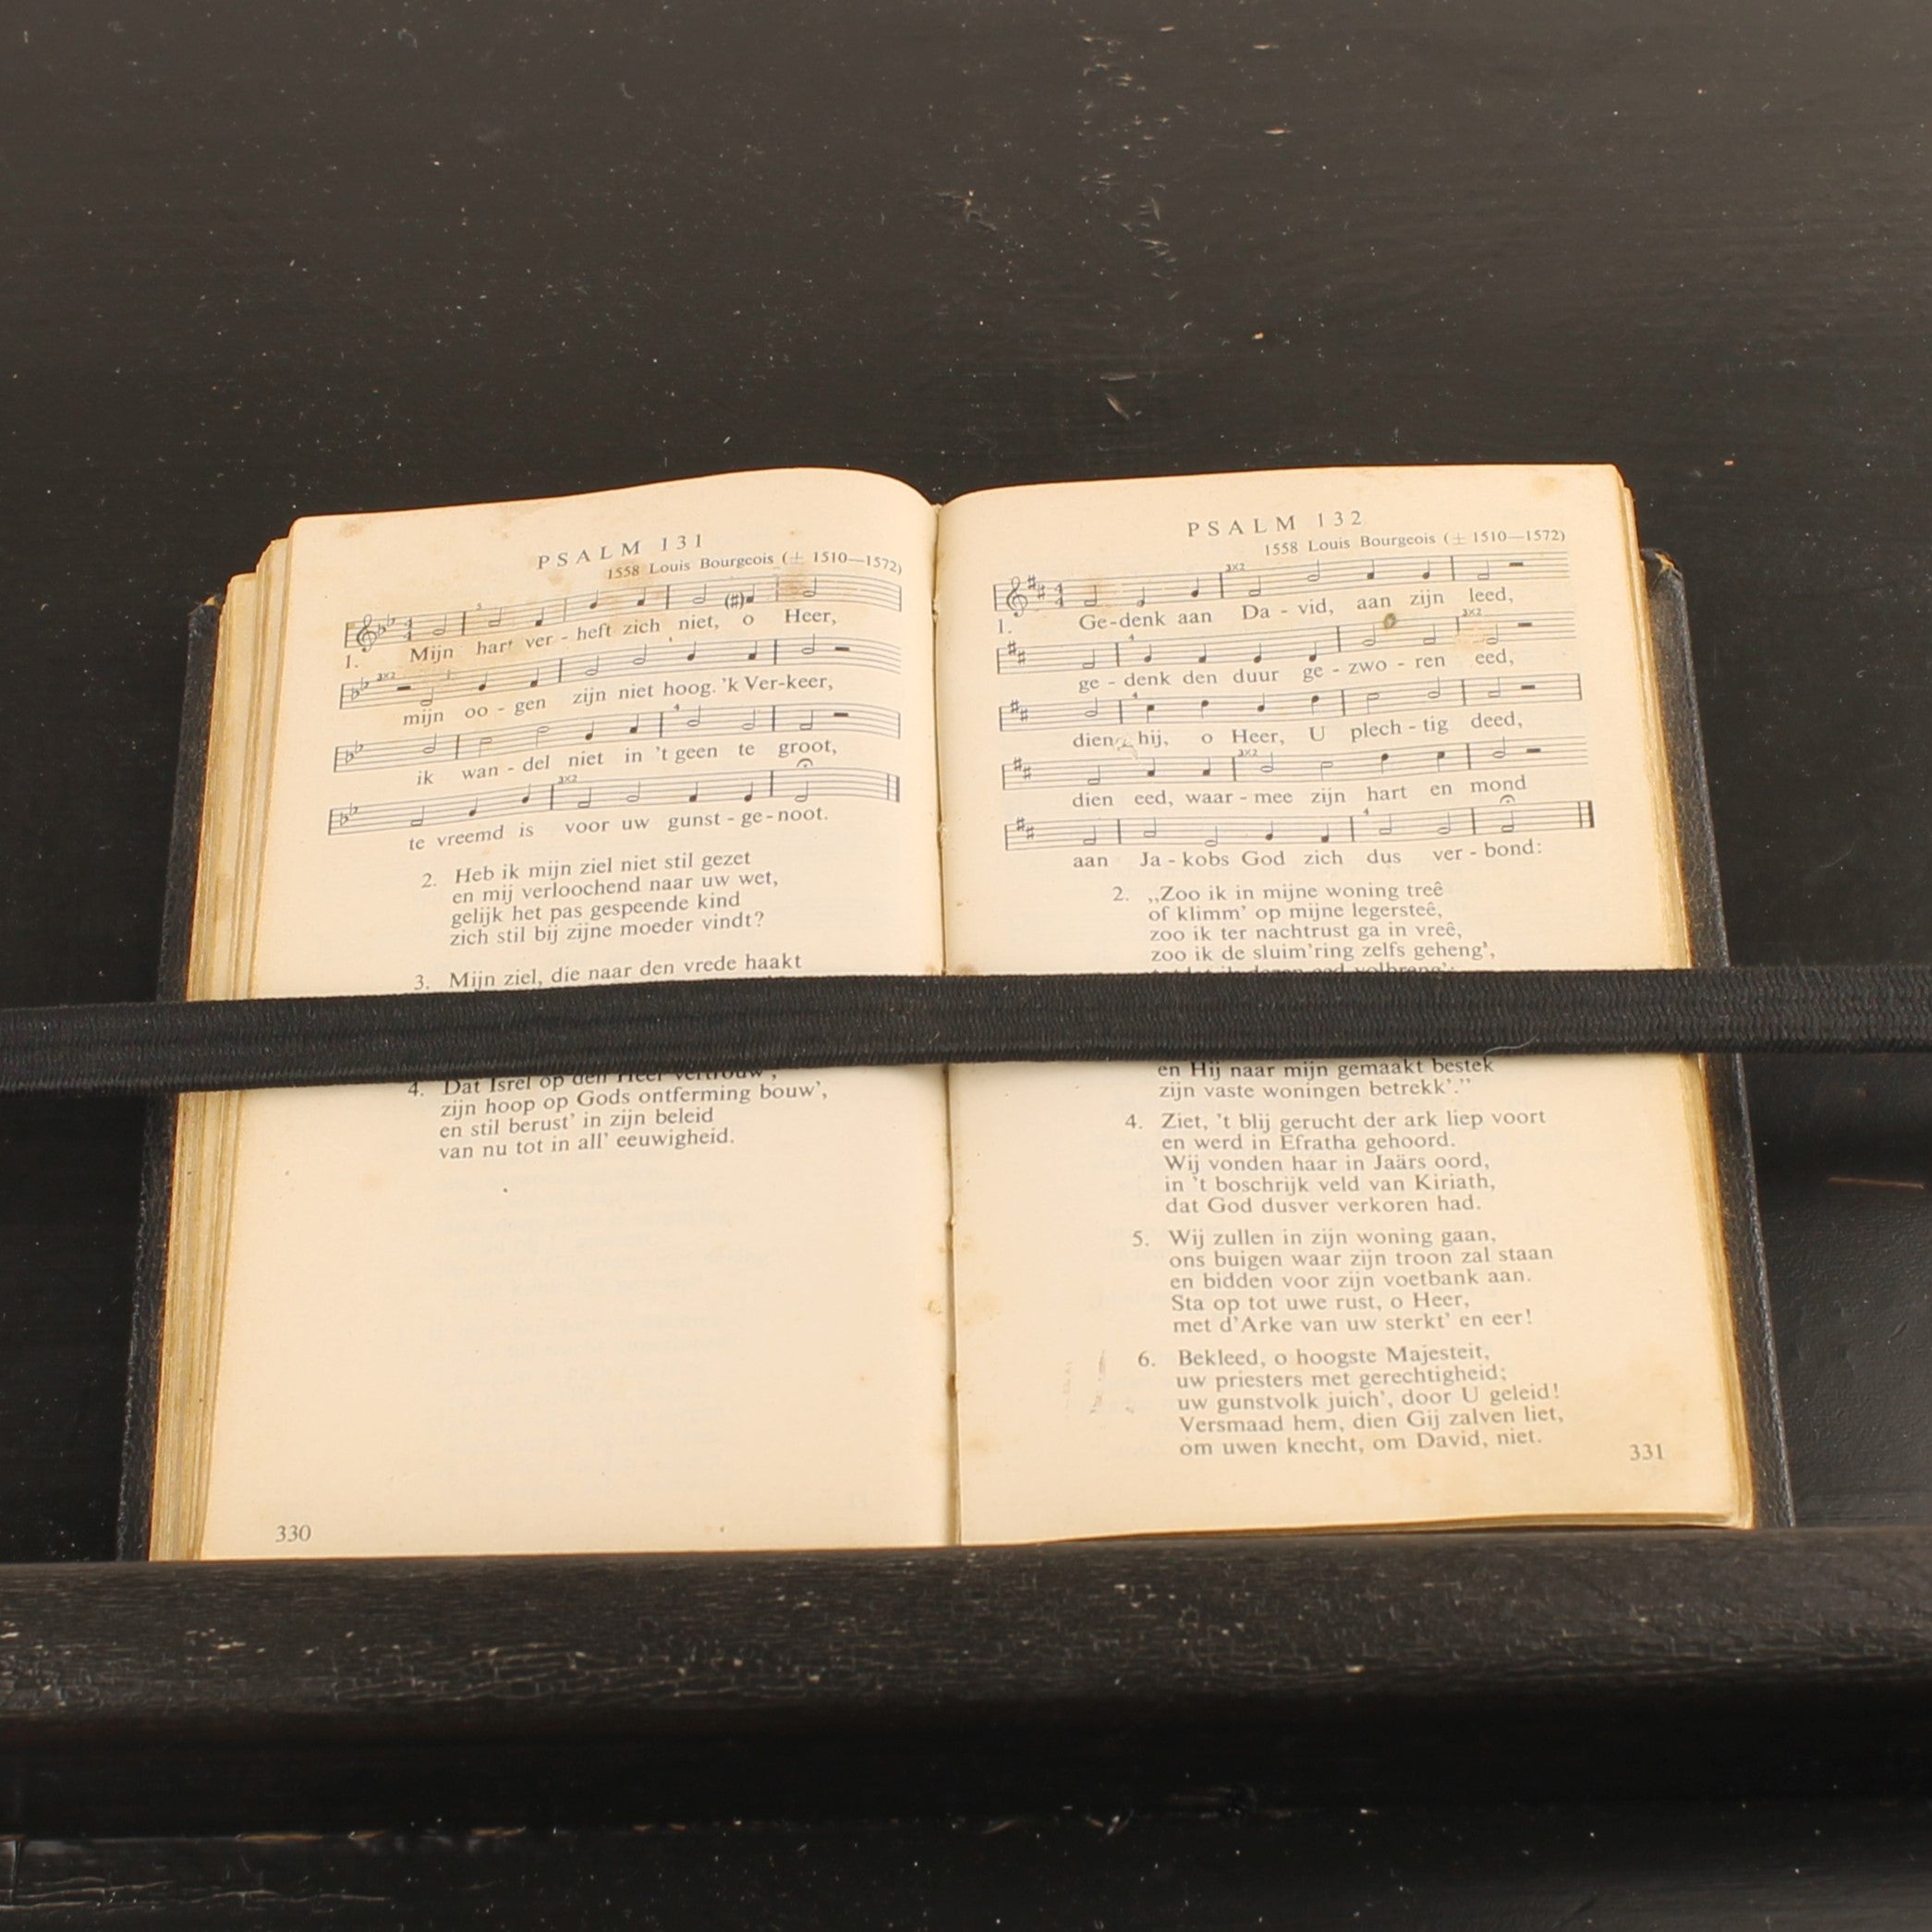 PSALM 131
1558 Louis Bourgeois (± 1510—1572)
1. Mijn hart ver - heft zich niet, o Heer,
mijn oo - gen zijn niet hoog. 'k Ver-keer,
ik wan - del niet in 't geen te groot,
te vreemd is voor uw gunst - ge - noot.
2. Heb ik mijn ziel niet stil gezet
en mij verloochend naar uw wet,
gelijk het pas gespeende kind
zich stil bij zijne moeder vindt?
3. Mijn ziel, die naar den vrede haakt
4. Dat Isrel op den Heer vertrouw',
zijn hoop op Gods ontferming bouw',
en stil berust' in zijn beleid
van nu tot in all' eeuwigheid.
330
PSALM 132
1558 Louis Bourgeois (± 1510—1572)
1. Ge-denk aan Da - vid, aan zijn leed,
ge - denk den duur ge - zwo - ren eed,
dien hij, o Heer, U plech - tig deed,
dien eed, waar - mee zijn hart en mond
aan Ja - kobs God zich dus ver - bond:
2. „Zoo ik in mijne woning treê
of klimm' op mijne legersteê,
zoo ik ter nachtrust ga in vreê,
zoo ik de sluim'ring zelfs geheng',
en Hij naar mijn gemaakt bestek
zijn vaste woningen betrekk'.”
4. Ziet, 't blij gerucht der ark liep voort
en werd in Efratha gehoord.
Wij vonden haar in Jaärs oord,
in 't boschrijk veld van Kiriath,
dat God dusver verkoren had.
5. Wij zullen in zijn woning gaan,
ons buigen waar zijn troon zal staan
en bidden voor zijn voetbank aan.
Sta op tot uwe rust, o Heer,
met d'Arke van uw sterkt' en eer!
6. Bekleed, o hoogste Majesteit,
uw priesters met gerechtigheid;
uw gunstvolk juich', door U geleid!
Versmaad hem, dien Gij zalven liet,
om uwen knecht, om David, niet.
331